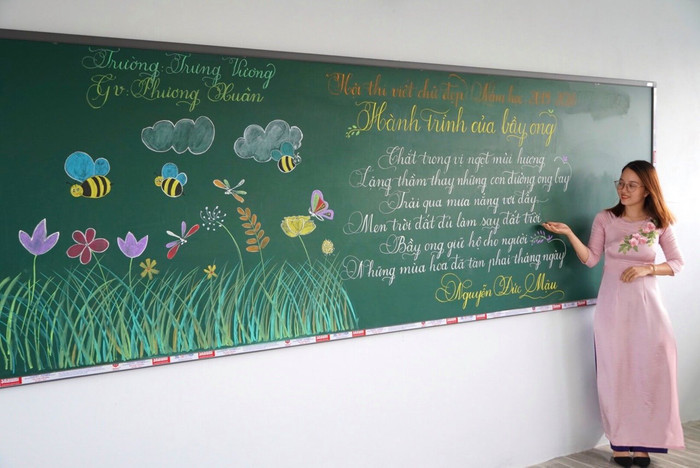 Trường: Trưng Vương
Gv: Phương Xuân
Hội thi viết chữ đẹp Năm học 2019-2020
Hành trình của bầy ong
Chắt trong vị ngọt mùi hương
Lặng thầm thay những con đường ong bay
Trải qua mưa nắng vơi đầy
Men trời đất đủ làm say đất trời
Bầy ong giữ hộ cho người
Những mùa hoa đã tàn phai tháng ngày
Nguyễn Đức Mậu